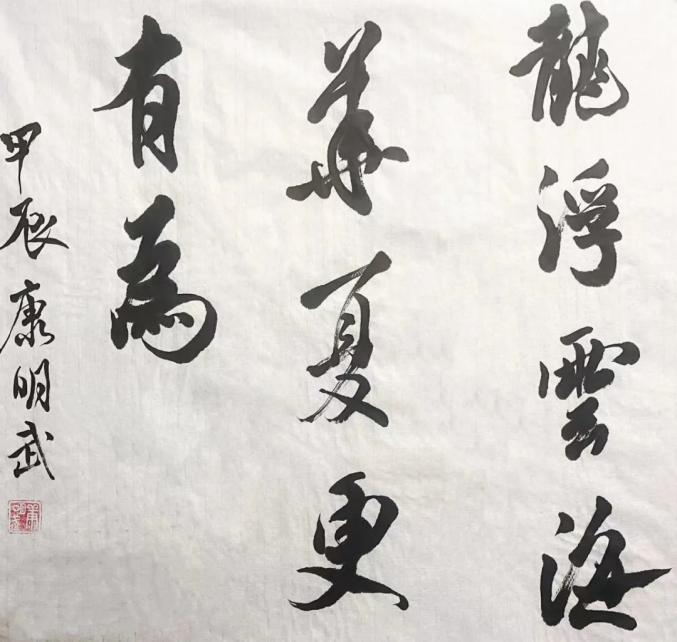 龍浮雲海
華夏更
有為
甲辰康明武